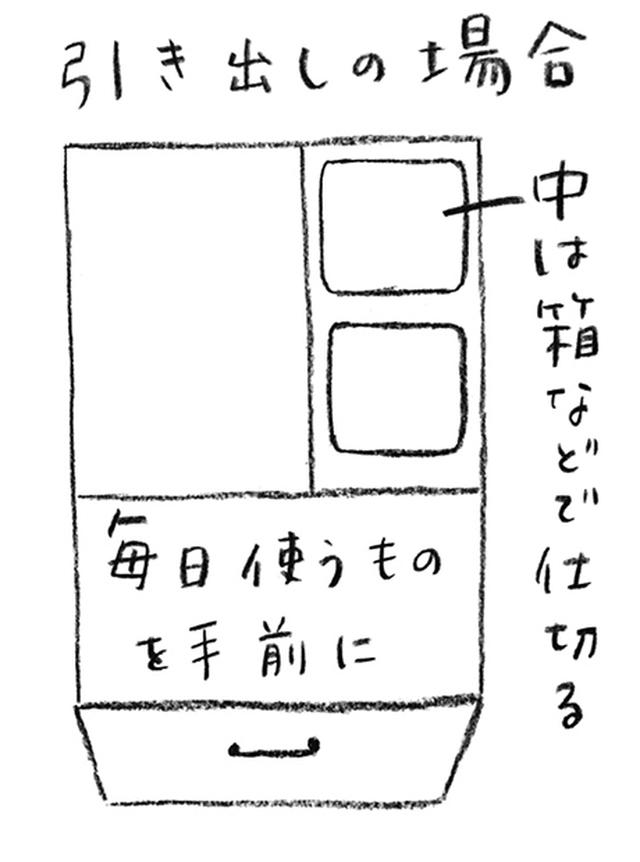 引き出しの場合
中は箱などで仕切る
毎日使うもの
を手前に